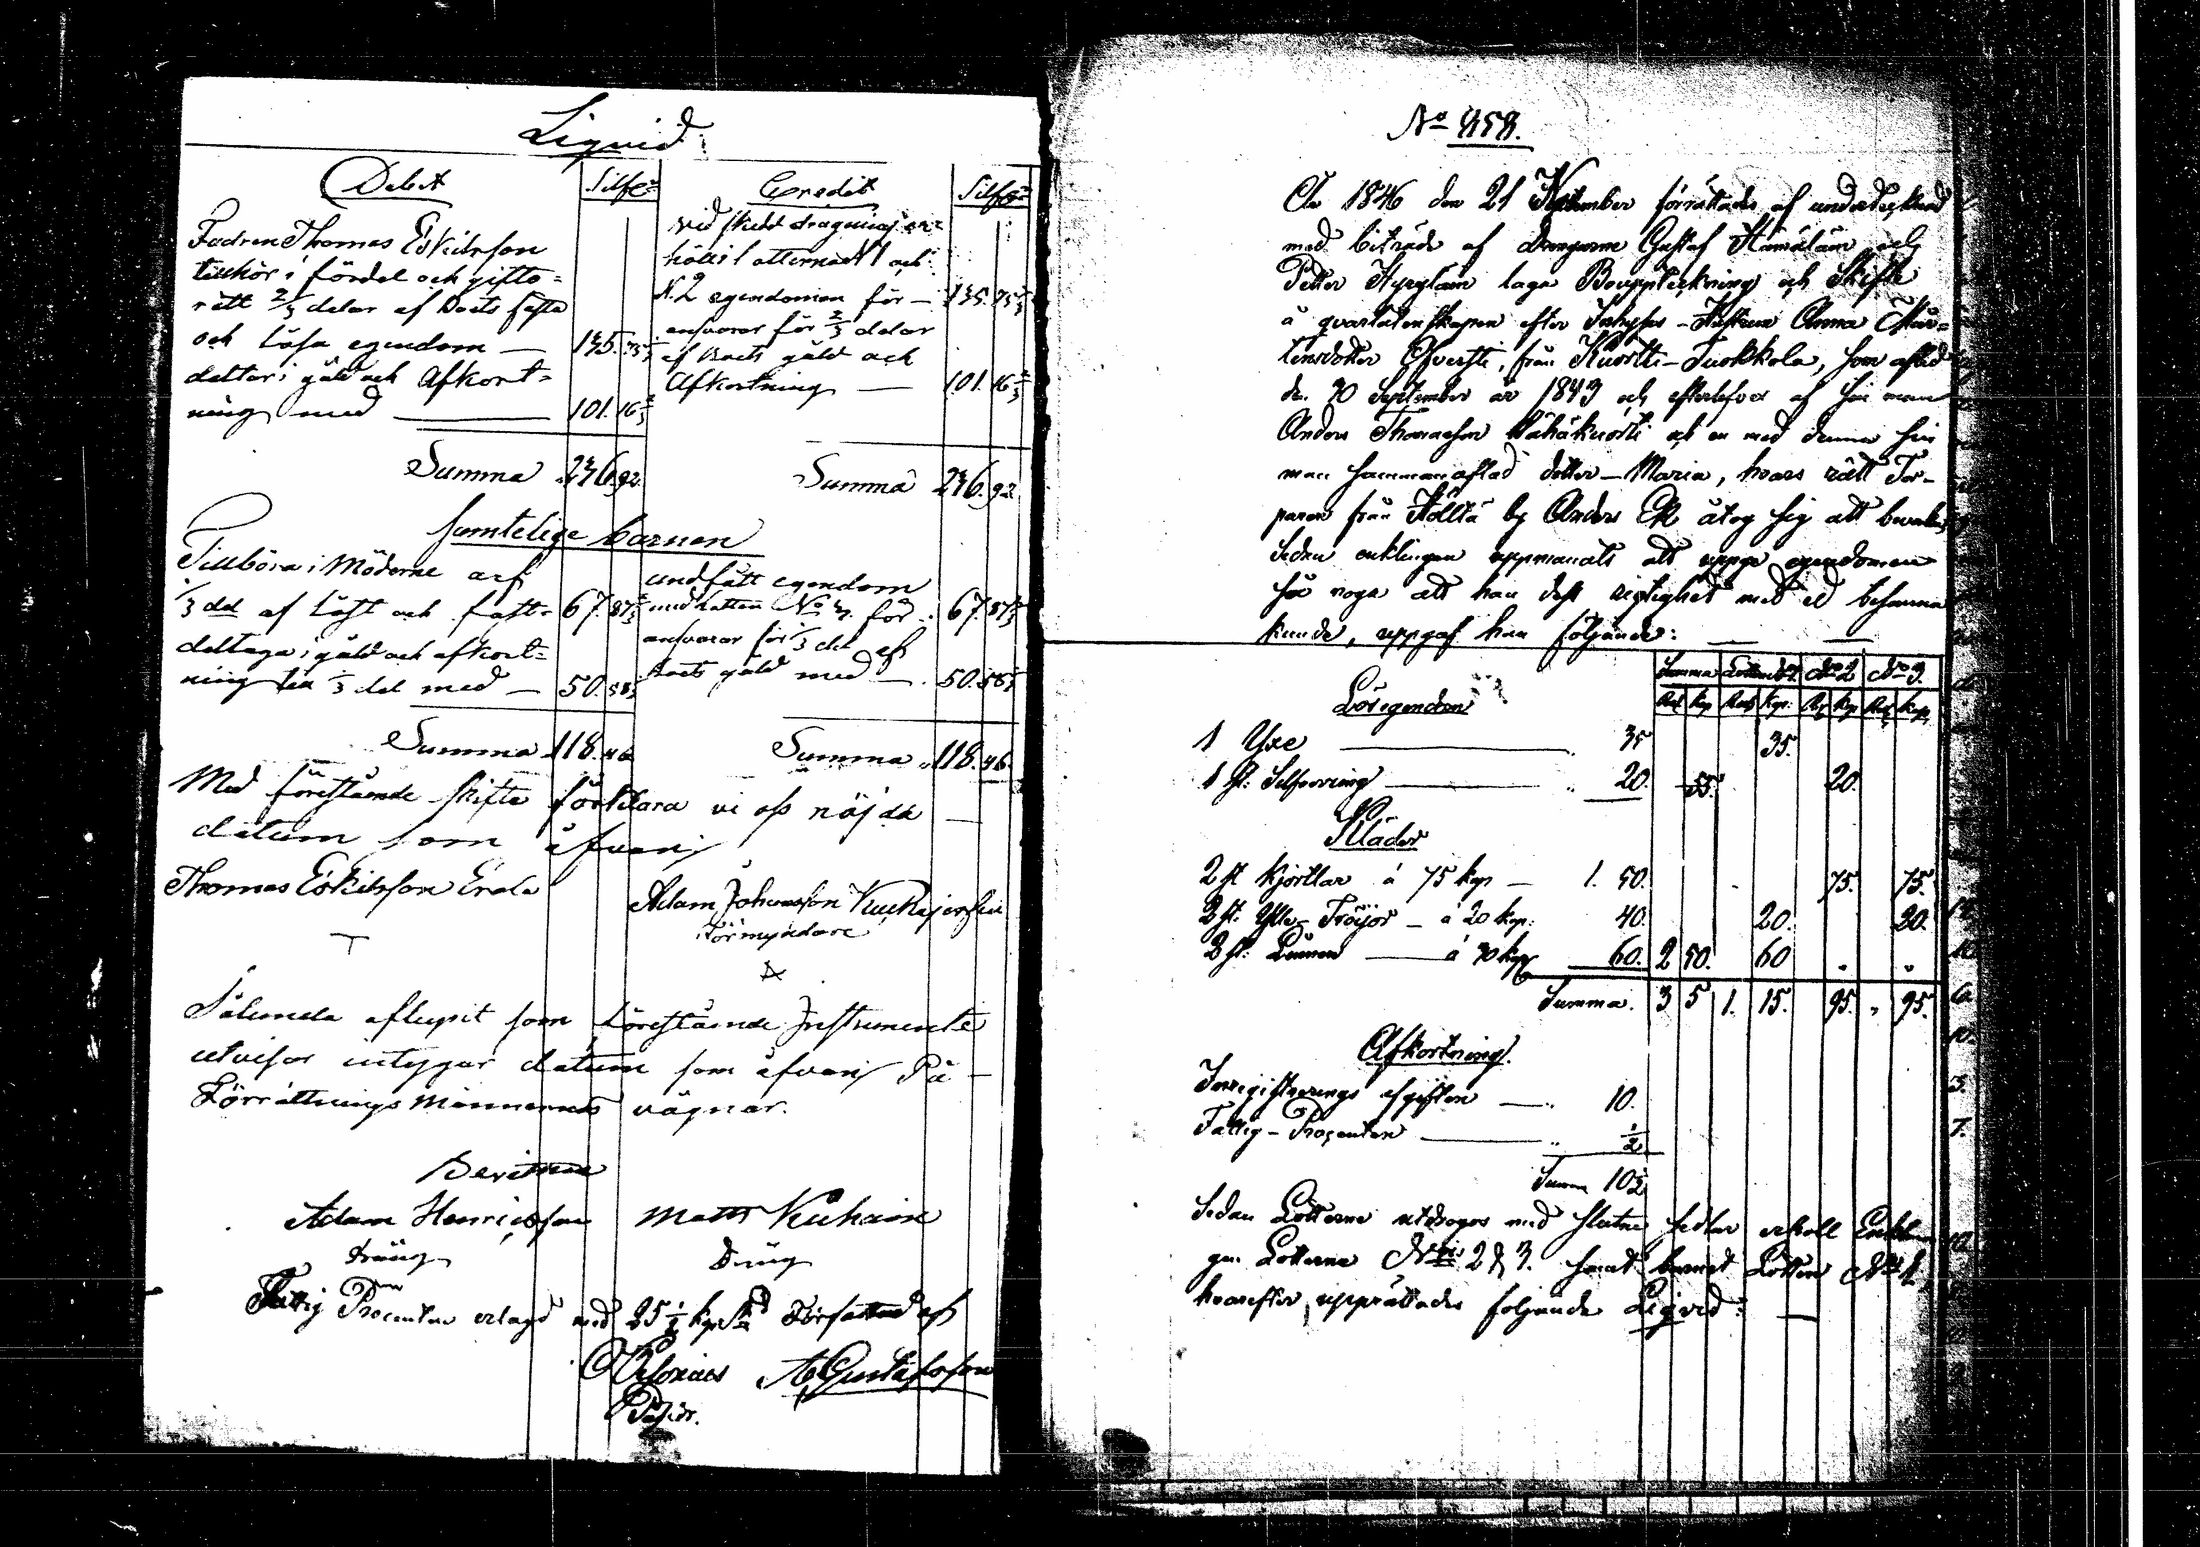 Liqvid:
Debet Silfr
Fadren Thomas Eskilsson
tillhör i fördel och gifto=
rätt 2/3 delar af boets fasta
och lösa egendom — 145.75
deltar i gäld och Afkort=
ning med — 101.16 2/3
Summa 246.92
Credit Silfr
vid skedd dragning er=
hållit lotterna N 1 och
N. 2 egendomen för — 145.75
ansvarar för 2/3 delar
af boets gäld och
Afkortning — 101.16 2/3
Summa 246.92
Samtelige barnen
Tillhöra i Möderne arf
1/3 del af löst och fast= 67.87
deltaga i gäld och afkort=
ning till 1/3 del med — 50.58 1/3
Summa 118.46
undfått egendom
med lotten No 3. för 67.87
ansvarar för 1/3 del af
boets gäld med — 50.58 1/3
Summa 118.46.
Med förestående skifte förklara vi oss nöjda —
datum som åfvan
Thomas Eskilsson Erola
Adam Johansson
Förmyndare
Sålunda aflupit som förestående Instrumente
utvisar intygar datum som åfvan På
Förrättnings Männernes vägnar.
Adam Henricsson Matts Kuhain
dräng Dräng
Fattig Procenten erlagd med 25 1/2 kop Författad af
A Gustafsson
No 858.
År 1846 den 21 November förrättades af undertecknad
med biträde af drengarne Gustaf Hämäläin och
Petter Hyryläin laga Bouppteckning och Skifte
å qvarlåtenskapen efter Inhyses-Hustrun Anna Mår=
tensdotter från Kuortti-Tuokkola, som afled
den 30 September år 1843 och efterlefves af sin man
Anders Thomasson Vähäkuortti och en med denne sin
man sammanaflad dotter — Maria, hvars rätt Tor-
paren från Hölttä by Anders Ek åtog sig att bevaka,
Sedan enklingen uppmanats att uppge egendomen
så noga att han dess rigtighet med ed besanna
kunde, uppgaf han följande: —
Summa Lotten No 1. No 2 No 3.
Rub Kop Rub Kop. Rub Kop Rub Kop
Lösegendom
1 Yxe — 35 35.
1 st. Silfverring — 20. 55. 20.
Kläder
2 st Kjortlar à 75 kop — 1. 50. 75. 75.
2 st. Ylle-Tröijor — à 20 kop. 40. 20. 20.
2 st. Linnen — à 30 kop 60. 2 50. 60 " "
Summa. 3 5 1. 15. 95. " 95.
Afkortning.
Inregistrerings afgiften — " 10.
Fattig-Procenten — " 1/2
Summa 10 1/2
Sedan Lotterne utdrogos med slutne sedlar erhöll Enklin-
gen Lotterne No 2 & 3. samt barnet Lotten No 1,
hvarefter upprättades följande Liqvid: —